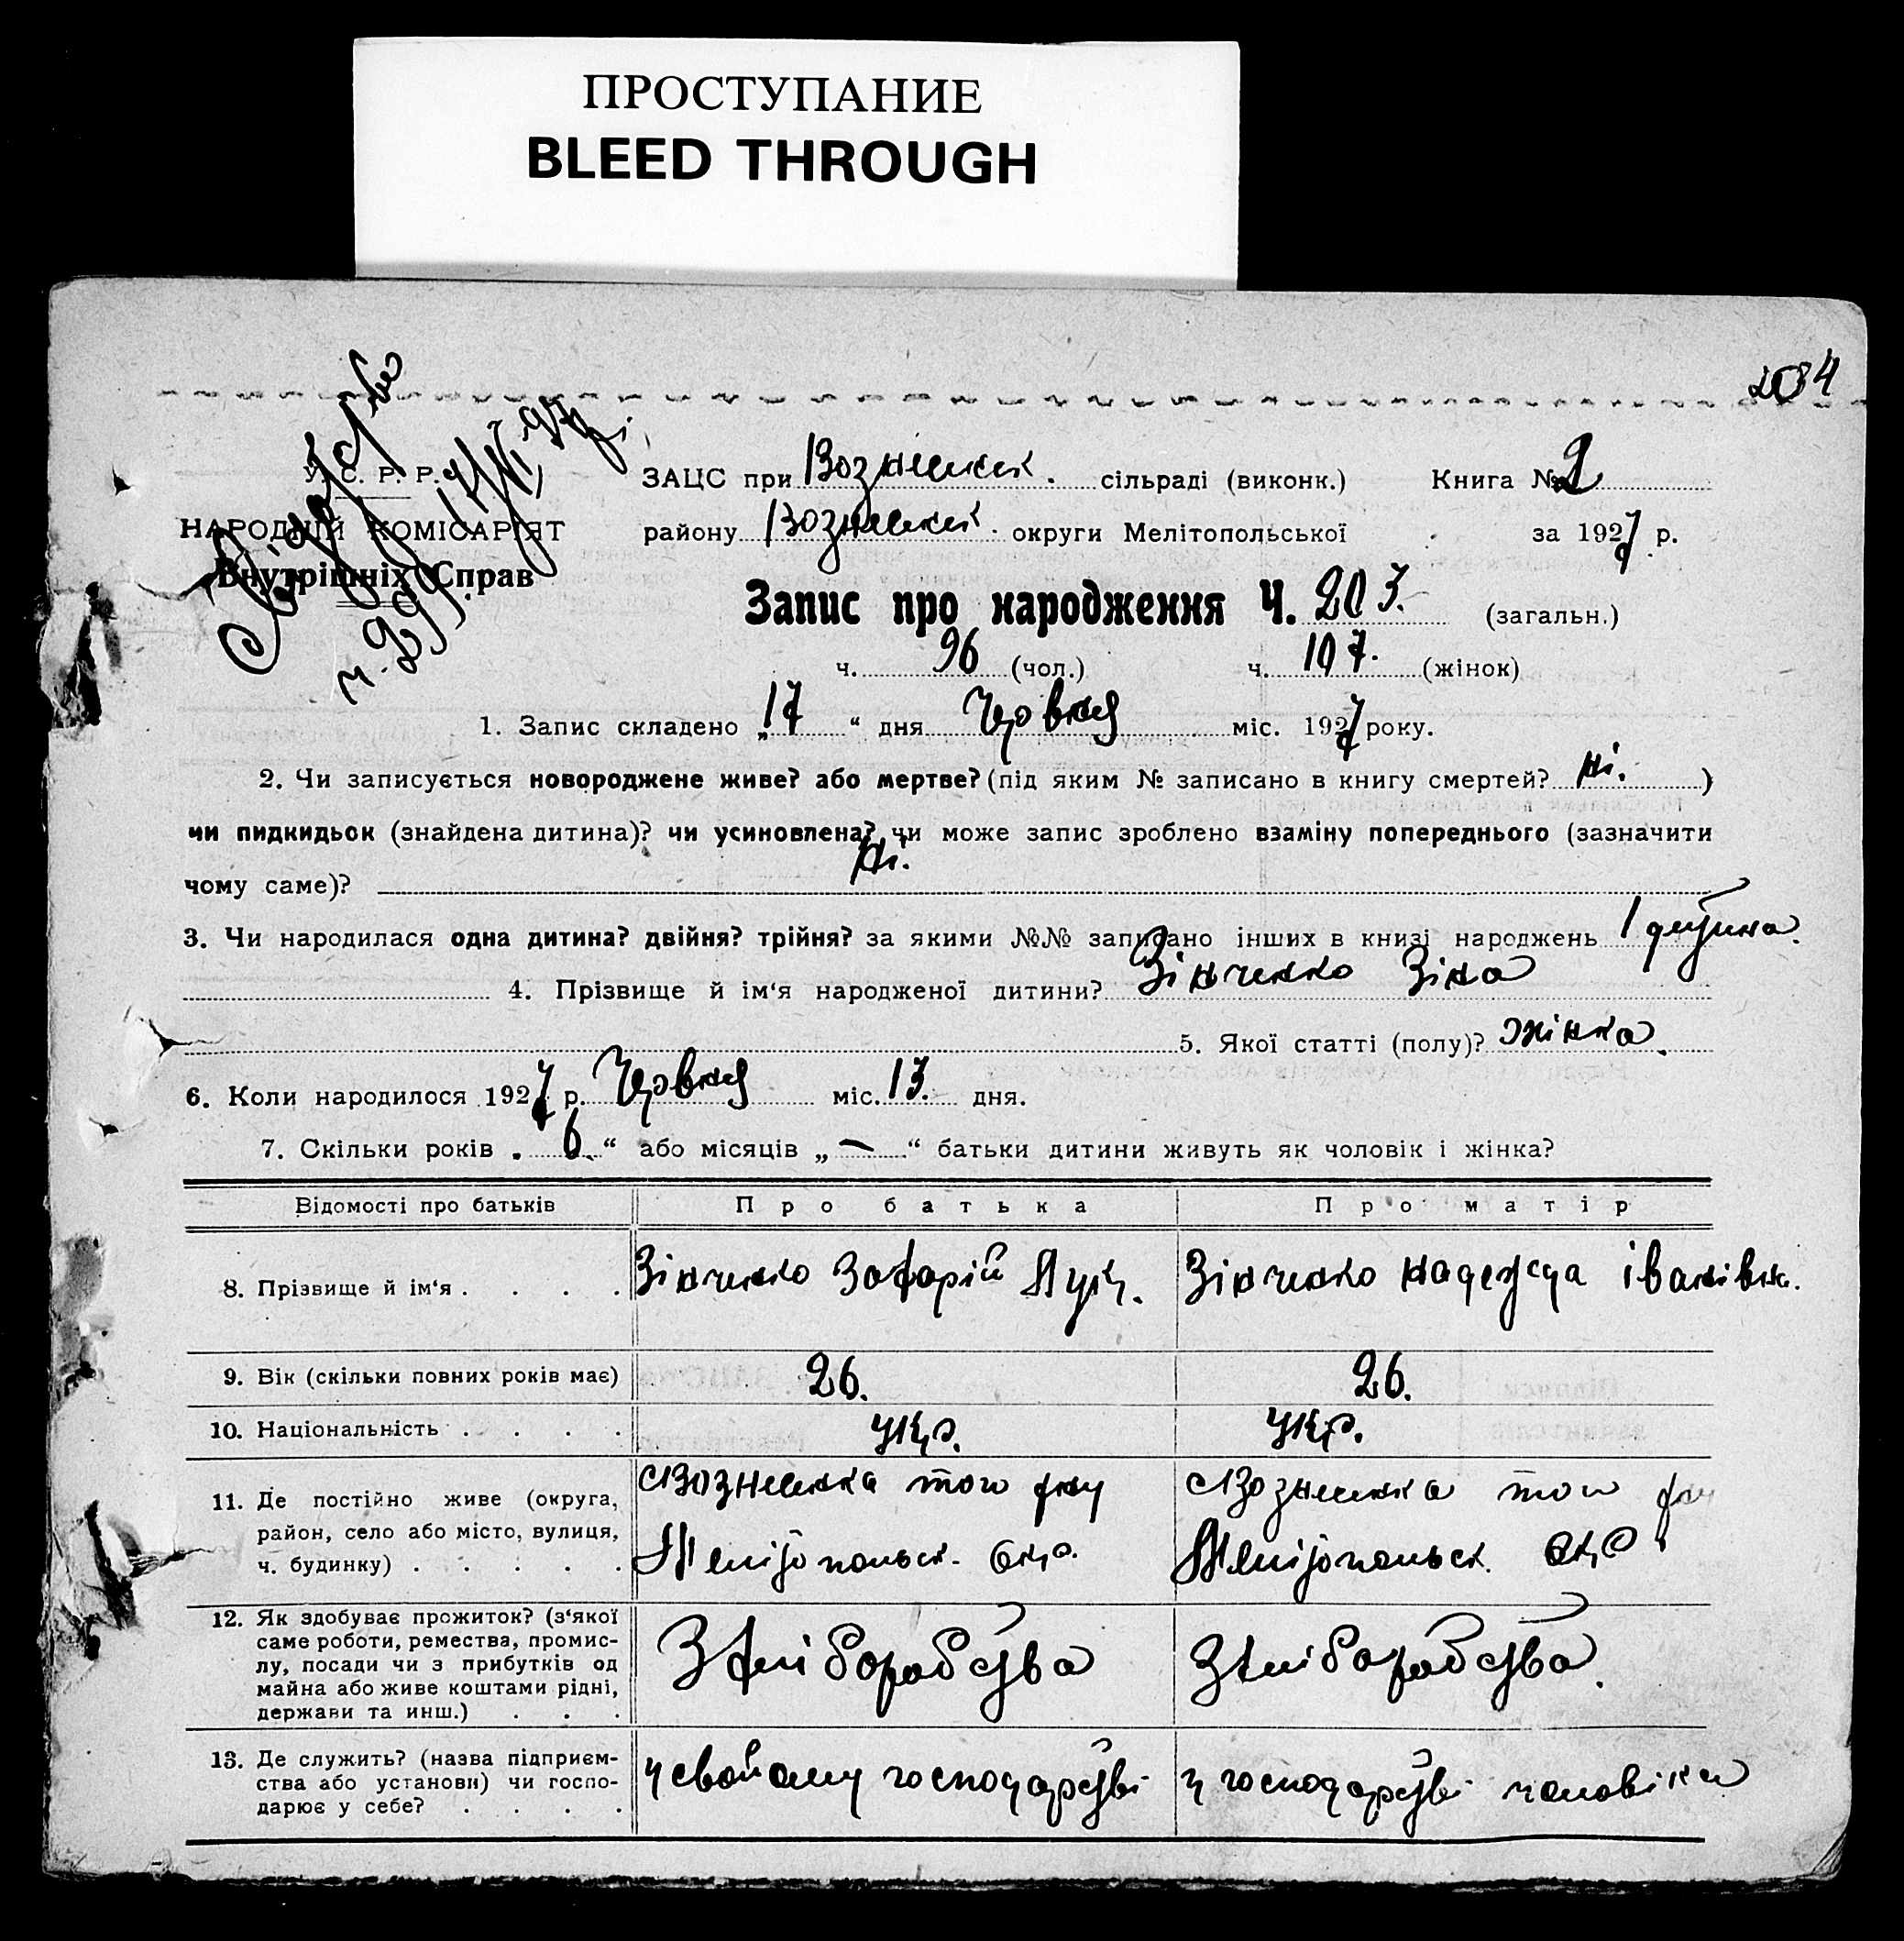 ПРОСТУПАНИЕ
BLEED THROUGH
204
У. С. Р. Р.
НАРОДНІЙ КОМІСАРІЯТ
Внутрішніх Справ
ЗАЦС при Вознесенск. сільраді (виконк.) Книга № 2
району Вознесенск. округи Мелітопольської за 1927 р.
Запис про народження Ч. 203. (загальн.)
ч. 96 (чол.) ч. 107. (жінок)
1. Запис складено „17“ дня Червня міс. 1927 року.
2. Чи записується новороджене живе? або мертве? (під яким № записано в книгу смертей? ні. )
чи пидкидьок (знайдена дитина)? чи усиновлена? чи може запис зроблено взаміну попереднього (зазначити
чому саме)? ні.
3. Чи народилася одна дитина? двійня? трійня? за якими №№ записано інших в книзі народжень 1 дитина.
4. Прізвище й ім‘я народженої дитини? Зінченко Зіна
5. Якої статті (полу)? жінка.
6. Коли народилося 1927 р. Червня міс. 13. дня.
7. Скільки років „ 6. “ або місяців „ — “ батьки дитини живуть як чоловік і жінка?
Відомості про батьків Про батька Про матір
8. Прізвище й ім‘я . . . . Зінченко Захарій Лук. Зінченко Надежда Іванівн.
9. Вік (скільки повних років має) 26. 26.
10. Національність . . . . Укр. Укр.
11. Де постійно живе (округа,
район, село або місто, вулиця,
ч. будинку) . . . . .
с Вознесенка того р-ну
Мелітопольск. окр.
с Вознесенка того р-ну
Мелітопольск. окр.
12. Як здобуває прожиток? (з‘якої
саме роботи, ремества, промис-
лу, посади чи з прибутків од
майна або живе коштами рідні,
держави та инш.) . . .
З хліборобства
З хліборобства.
13. Де служить? (назва підприєм-
ства або установи) чи госпо-
дарює у себе? . . . .
у свойому господарстві
у господарстві чоловіка